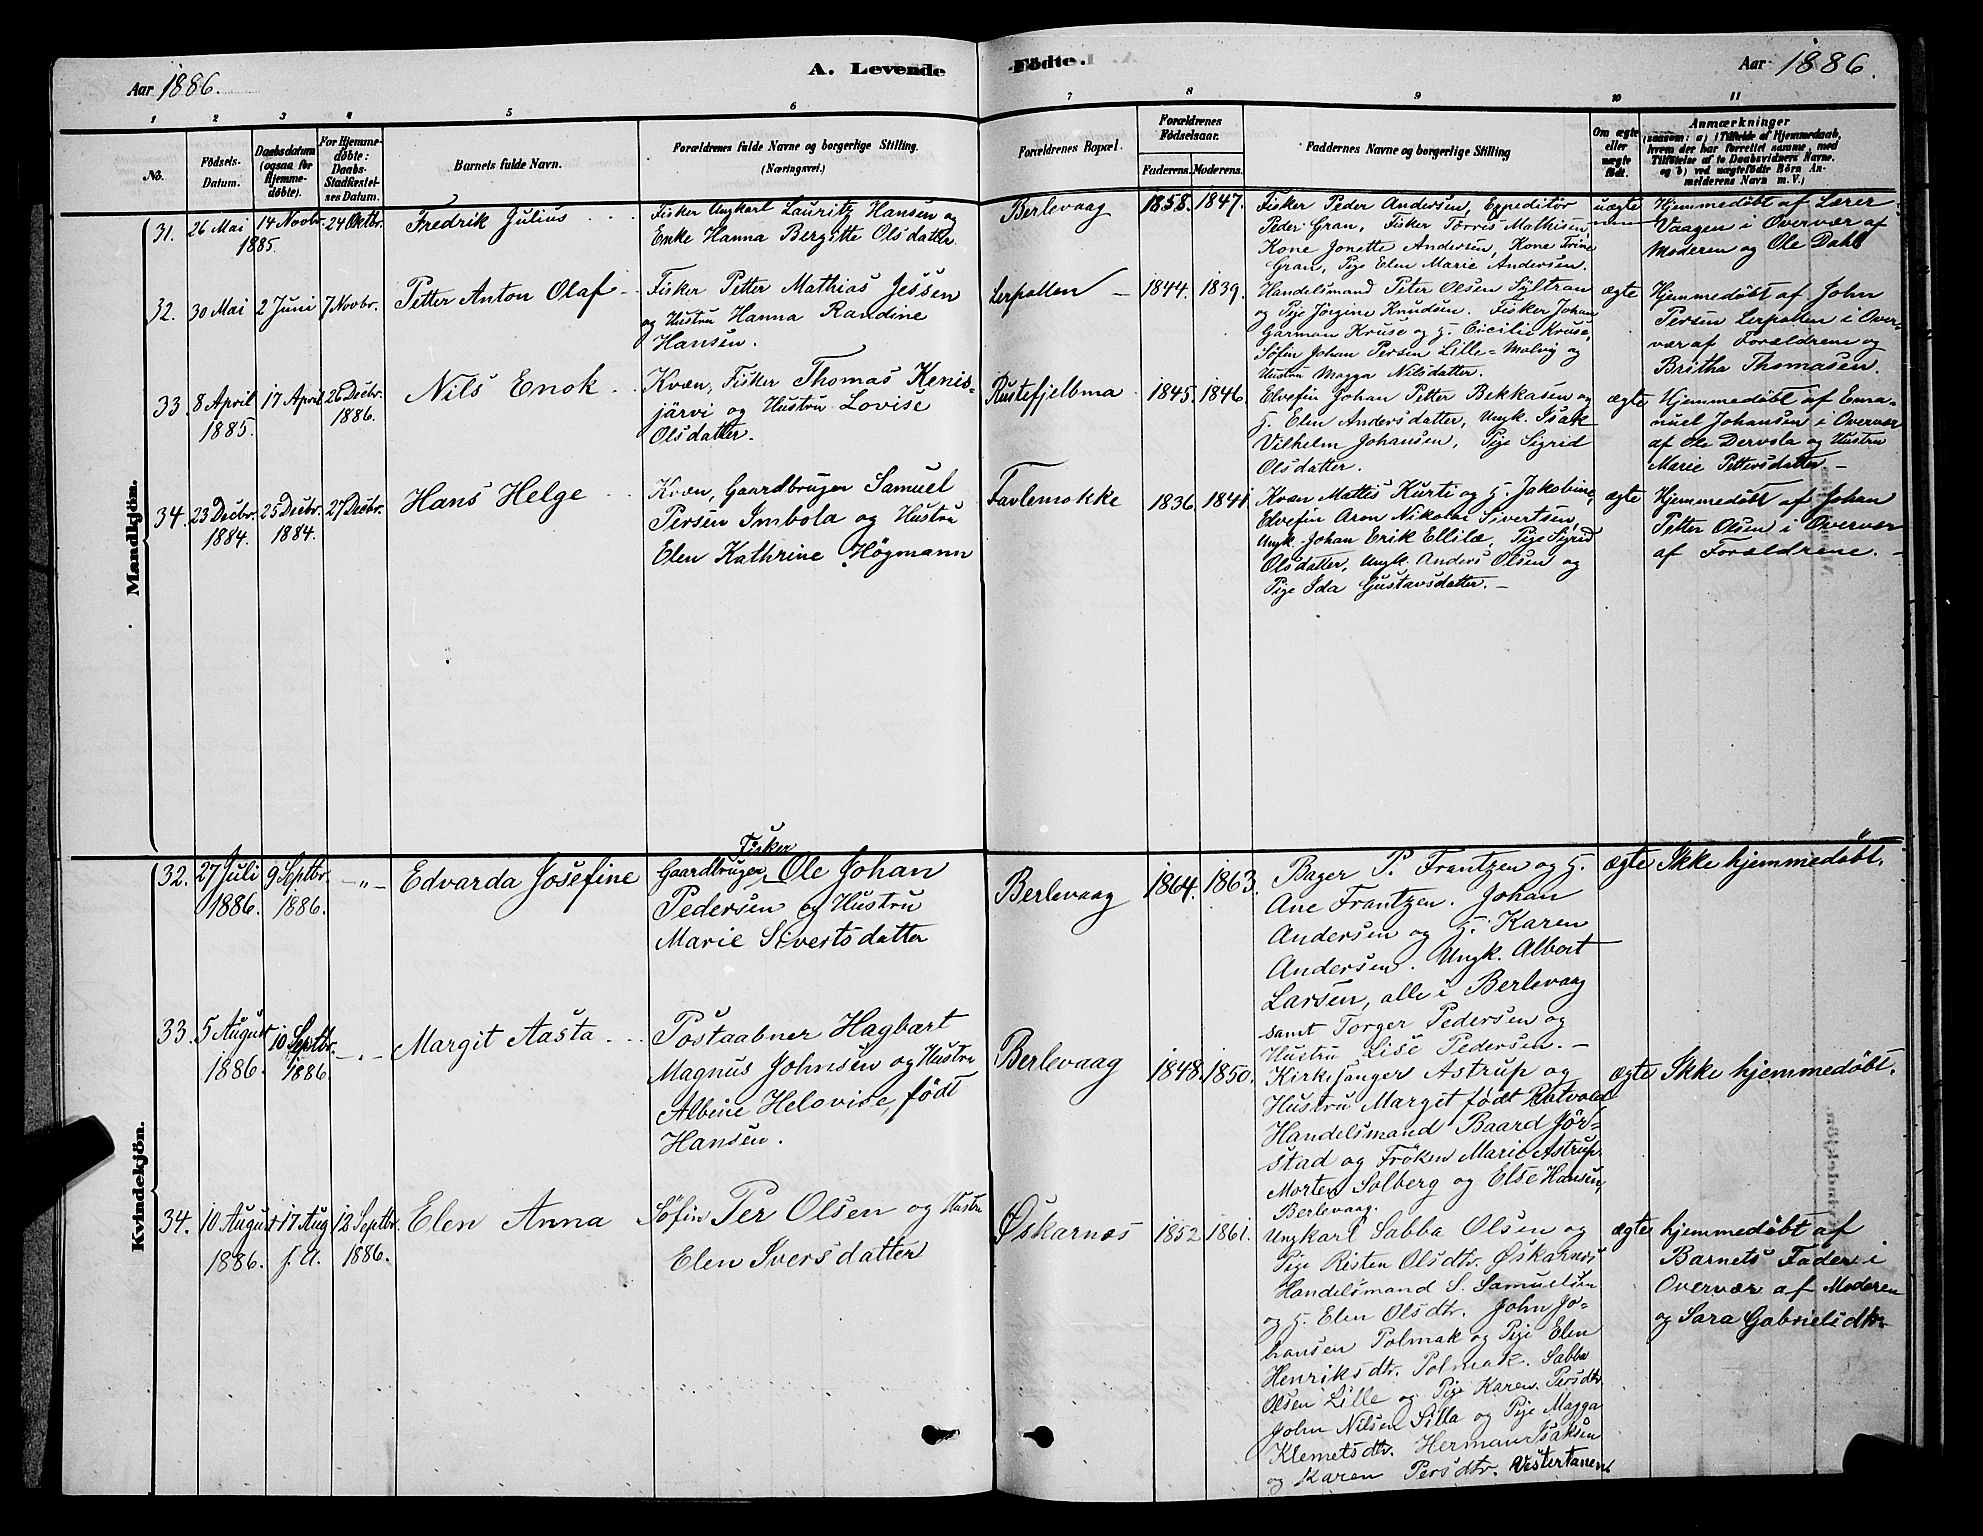 Aar 1886.
A. Levende
Födte.
Aar 1886.
1 2 3 4 5 6 7 8 9 10 11
No.
Födsels-
Datum.
Daabsdatum
(ogsaa for
Hjemme-
döbte).
For Hjemme-
döbte:
Daabs-
Stadfæstel-
ses Datum.
Barnets fulde Navn.
Forældrenes fulde Navne og borgerlige Stilling.
(Næringsvei.)
Forældrenes Bopæl.
Forældrenes
Födselsaar.
Faderens. Moderens.
Faddernes Navne og borgerlige Stilling
Om ægte
eller
uægte
födt.
Anmærkninger
(saasom: a) i Tilfælde af Hjemmedaab,
hvem der har forrettet samme, med
Tilföielse af to Daabsvidners Navne.
og b) ved uægtefödte Börn An-
melderens Navn m. V.)
Mandkjön.
31.
26 Mai
1885.
14 Novbr.
24 Oktbr.
Fredrik Julius
Fisker Ungkarl Lauritz Hansen og
Enke Hanna Bergitte Olsdatter
Berlevaag
1858.
1847.
Fisker Peder Andersen, Expeditör
Peder Gran, Fisker Torris Mathisen,
Kone Jonette Andersen, Kone Trine
Gran, Pige Elen Marie Andersen.
uægte
Hjemmedøbt af Lærer
Vaagen i Overvær af
Moderen og Ole Dahl
32.
30 Mai
2 Juni
7 Novbr.
Petter Anton Olaf
Fisker Petter Mathias Jessen
og Hustru Hanna Randine
Hansen.
Lerpollen
1844.
1839.
Handelsmand Peter Olsen Syltran
og Pige Jörgine Knudsen. Fisker Johan
Garman Kruse og H. Cicilie Kruse,
Söfin Johan Persen Lille-Molvig og
Hustru Magga Nilsdatter.
ægte
Hjemmedøbt af John
Persen Lerpollen i Over-
vær af Forældrene og
Britha Thomasen.
33
8 April
1885.
17 April
26 Decbr.
1886.
Nils Enok
Kvæn, Fisker Thomas Kenis-
järvi og Hustru Lovise
Olsdatter.
Rustefjelbma
1845.
1846.
Elvefin Johan Petter Bekkasen og
H. Elen Andersdatter, Ungk. Isak
Vilhelm Johansen, Pige Sigrid
Olsdatter.
ægte
Hjemmedøbt af Ema-
nuel Johansen i Overvær
af Ole Dervola og Hustru
Marie Pettersdatter.
34.
23 Decbr.
1884.
25 Decbr.
1884.
27 Decbr.
Hans Helge
Kvæn, Gaardbruger Samuel
Persen Imbola og Hustru
Elen Kathrine Högmann
Favlemokke
1836.
1841
Kvæn Mattis Kurti og H. Jakobine,
Elvefin Aron Nikolai Sivertsen,
Ungk. Johan Erik Ellilæ, Pige Sigrid
Olsdatter, Ungk. Anders Olsen og
Pige Ida Gustavsdatter.
ægte
Hjemmedøbt af Johan
Petter Olsen i Overvær
af Forældrene.
Kvindekjön.
32.
27 Juli
1886.
9 Septbr.
1886.
-"-
Edvarda Josefine
Fisker
Gaardbruger, Ole Johan
Pedersen og Hustru
Marie Sivertsdatter
Berlevaag
1864.
1863.
Bager P. Frantzen og H.
Ane Frantzen. Johan
Andersen og H. Karen
Andersen. Ungk. Albert
Larsen, alle i Berlevaag
samt Torger Pedersen og
Hustru Lise Pedersen.
ægte
Ikke hjemmedøbt.
33.
5 August
1886.
10 Septbr.
1886.
-"-
Margit Aasta
Postaabner Hagbart
Magnus Johnsen og Hustru
Albine Helovise, födt
Hansen.
Berlevaag
1848.
1850.
Kirkesanger Astrup og
Hustru Marget födt Ratvold,
Handelsmand Baard Jör-
stad og Fröken Marie Astrup.
Morten Solberg og Else Hansen,
Berlevaag.
ægte
Ikke hjemmedøbt.
34.
10 August
1886.
17 Aug
s. A.
12 Septbr.
1886.
Elen Anna
Söfin Per Olsen og Hustru
Elen Iversdatter
Øskarnæs
1852
1861.
Ungkarl Sabba Olsen og
Pige Risten Olsdtr. Øskarnæs
Handelsmand S. Samuelsen
og H. Elen Olsdtr. John Jo-
hansen Polmak og Pige Elen
Henriksdtr. Polmak. Sabba
Olsen Lille og Pige Karen Persdtr.
John Nilsen Silla og Pige Magga
Klemetsdtr. Herman Isaksen
og Karen Persdtr. Vestertanen
ægte
hjemmedøbt af
Barnets Fader i
Overvær af Moderen
og Sara Gabrielsdtr.